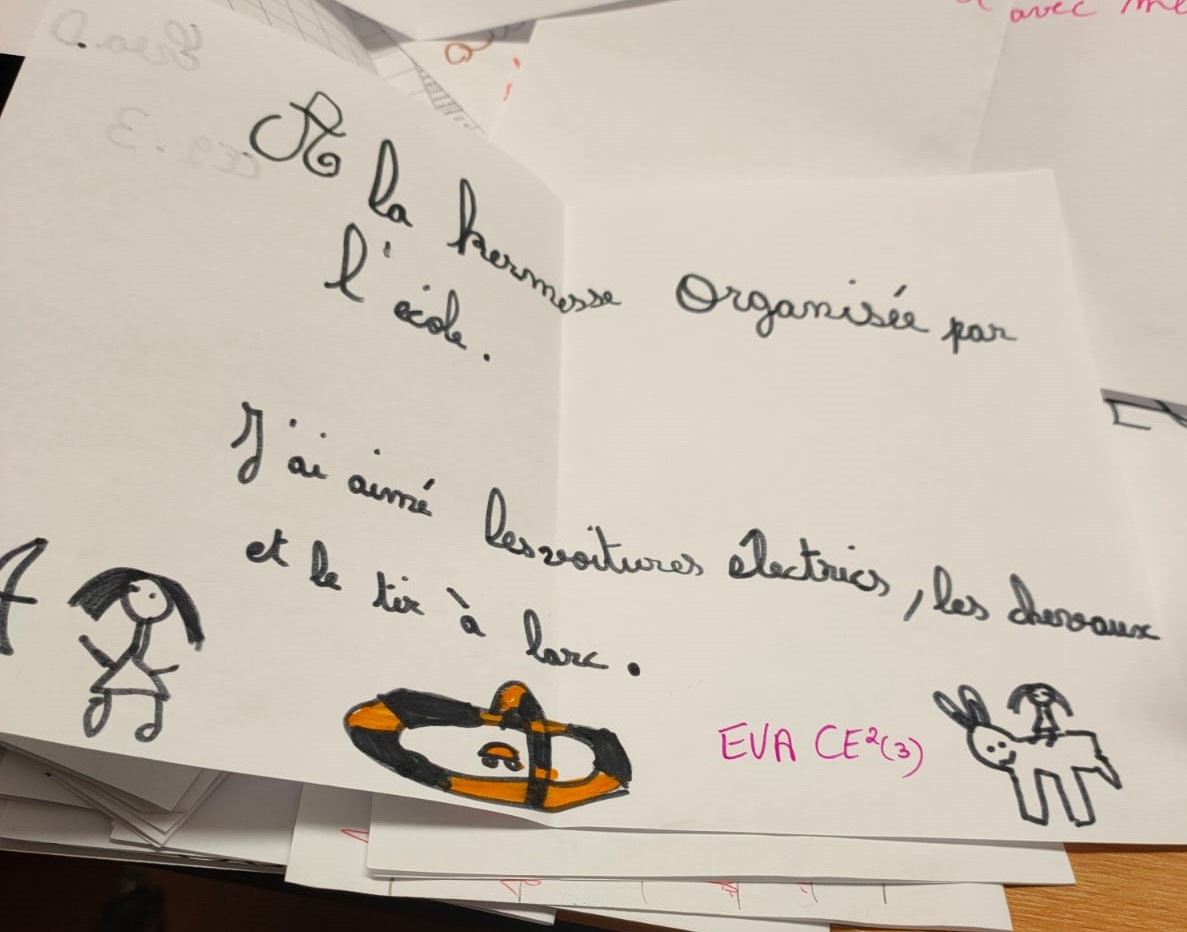 avec
A la kermesse organisée par
l'école.
J'ai aimé les voitures électrics, les chevaux
et le tir à larc.
EVA CE2(3)
Eva.D
CE2.3